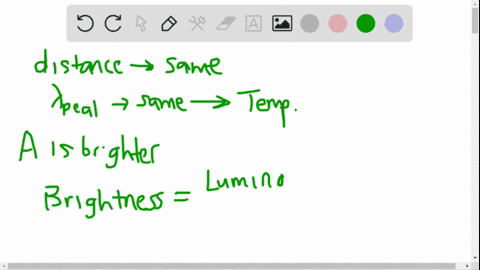 distance → same
λpeal → same → Temp.
A is brighter
Lumino
Brightness =